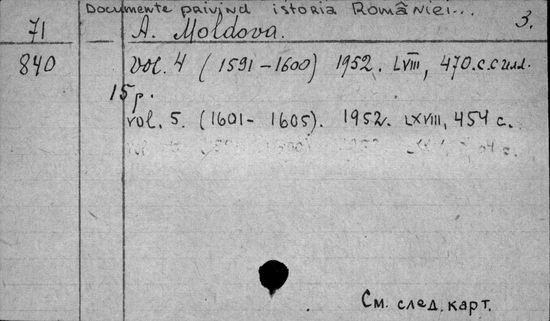 Documente privind istoria României...
3.
71 A. Moldova.
840 vol. 4 (1591-1600) 1952. LVIII, 470.с.с илл.
15р.
vol. 5. (1601-1605). 1952. LXVIII, 454 с.
См. след. карт.